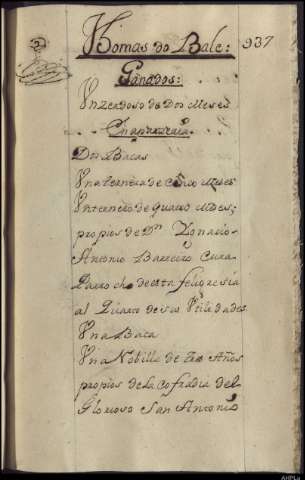 Thomas do Bale: 937
Ganados:
Vn Zerdoso de Dos Meses
En aparzeria
Dos Bacas
Vna ternera de cinco Meses
Vn ternero de quatro Meses;
propios de Dn Ygnacio
Antonio Barreiro Cura
Parrocho de esta feligresia
al Quarto de sus Vtilidades
Vna Baca
Vna Nobilla de tres Años
propios de la Cofradia del
Glorioso San Antonio
AHPLu